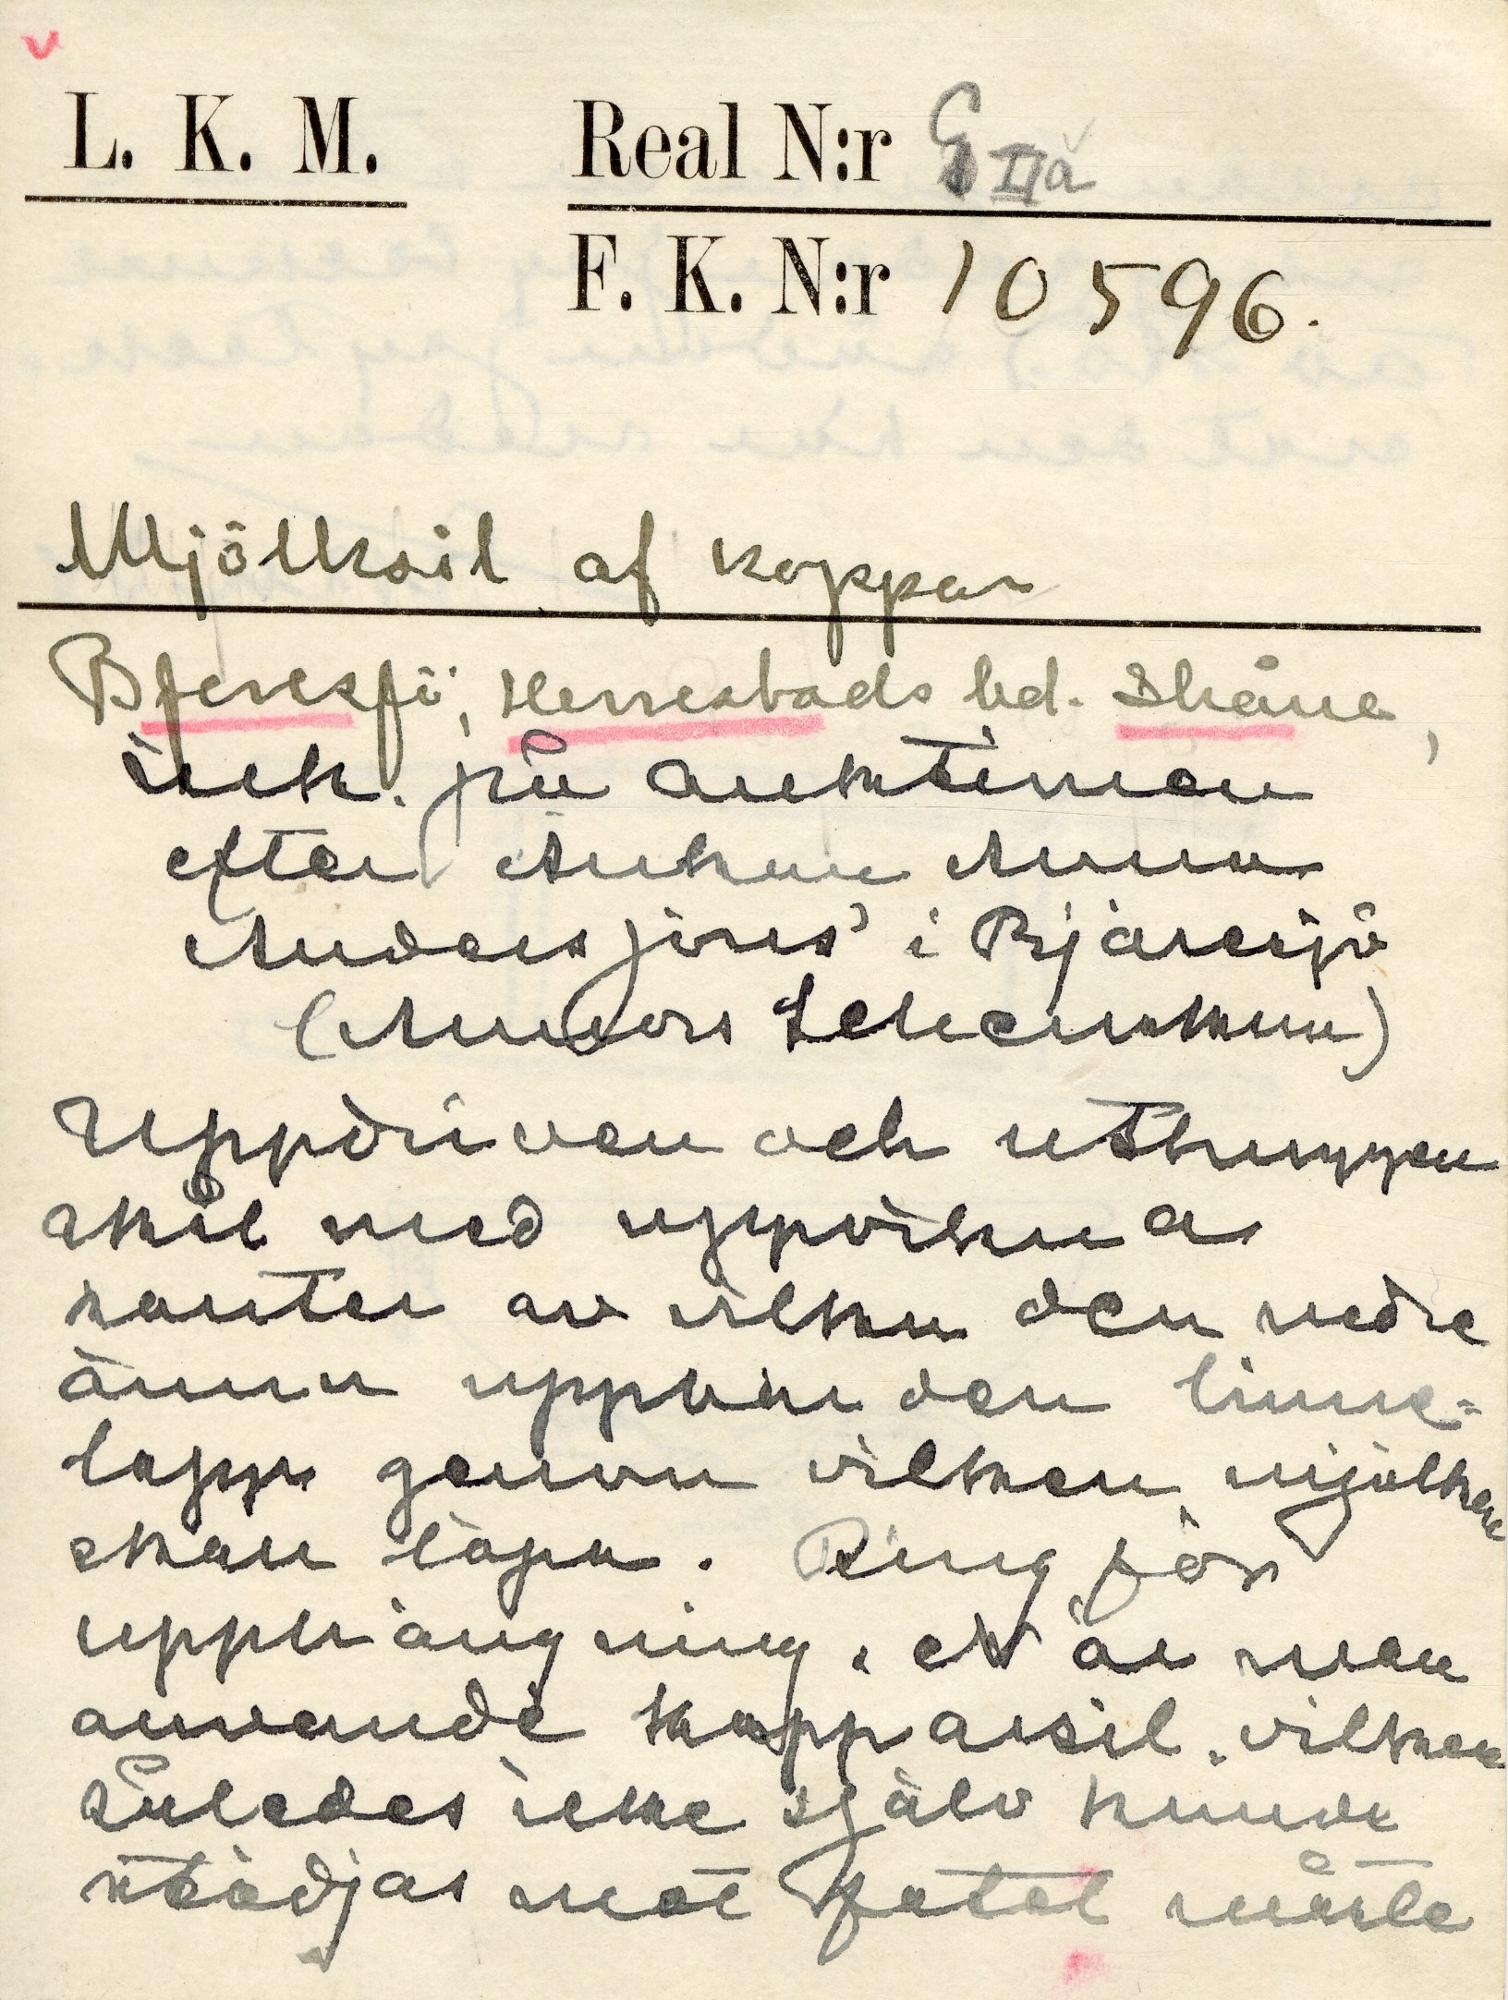 L. K. M. Real N:r G IIa
F. K. N:r 10596.
Mjölksil af koppar
Bjeresjö, Herrestads hd. Skåne,
ink. på auktionen
efter Änkan Anna
Andersjöns' i Bjäresjö
(Annors)
Uppdriven och uthuggen
skål med uppvikna
kanter av vilka den nedre
ännu uppbär den linne-
lapp genom vilken mjölken
skall löpa. Ring för
upphängning. När man
använde kopparsil, vilken
således icke själv kunde
stödjas mot fatet måste